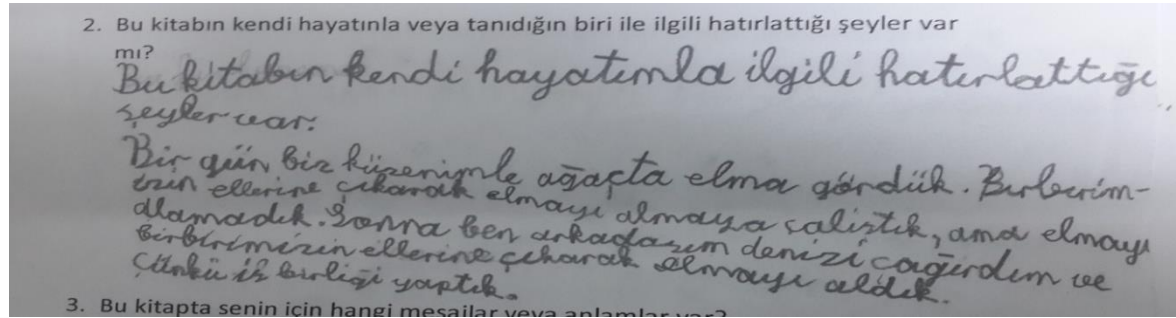 2. Bu kitabın kendi hayatınla veya tanıdığın biri ile ilgili hatırlattığı şeyler var
mı?
Bu kitabın kendi hayatımla ilgili hatırlattığı
şeyler var.
Bir gün biz küzenimle ağaçta elma gördük. Birbirim-
izin ellerine çıkarak elmayı almaya çalıştık, ama elmayı
alamadık. Sonra ben arkadaşım denizi çağırdım ve
birbirimizin ellerine çıkarak elmayı aldık.
Çünkü iş birliği yaptık.
3. Bu kitapta senin için hangi mesajlar veya anlamlar var?